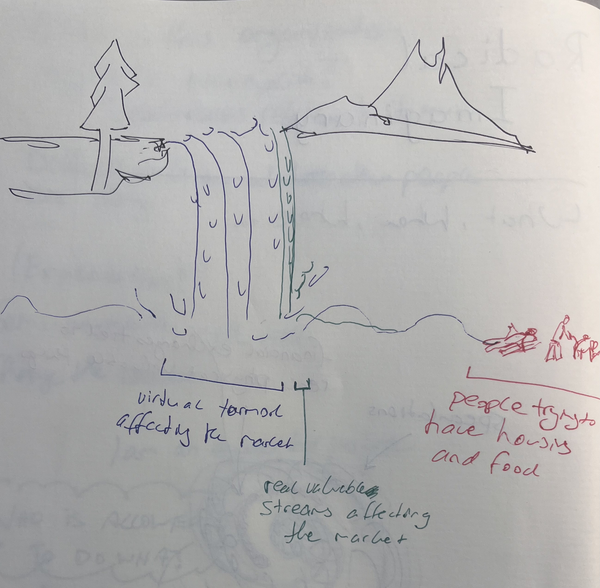 virtual
affecting the market
real valuable
streams affecting
the market
people trying to
have housing
and food